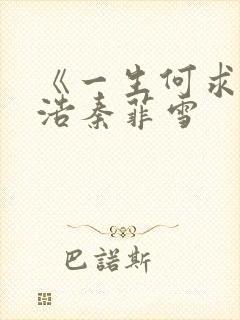 《一生何求
浩秦菲雪
巴諾斯